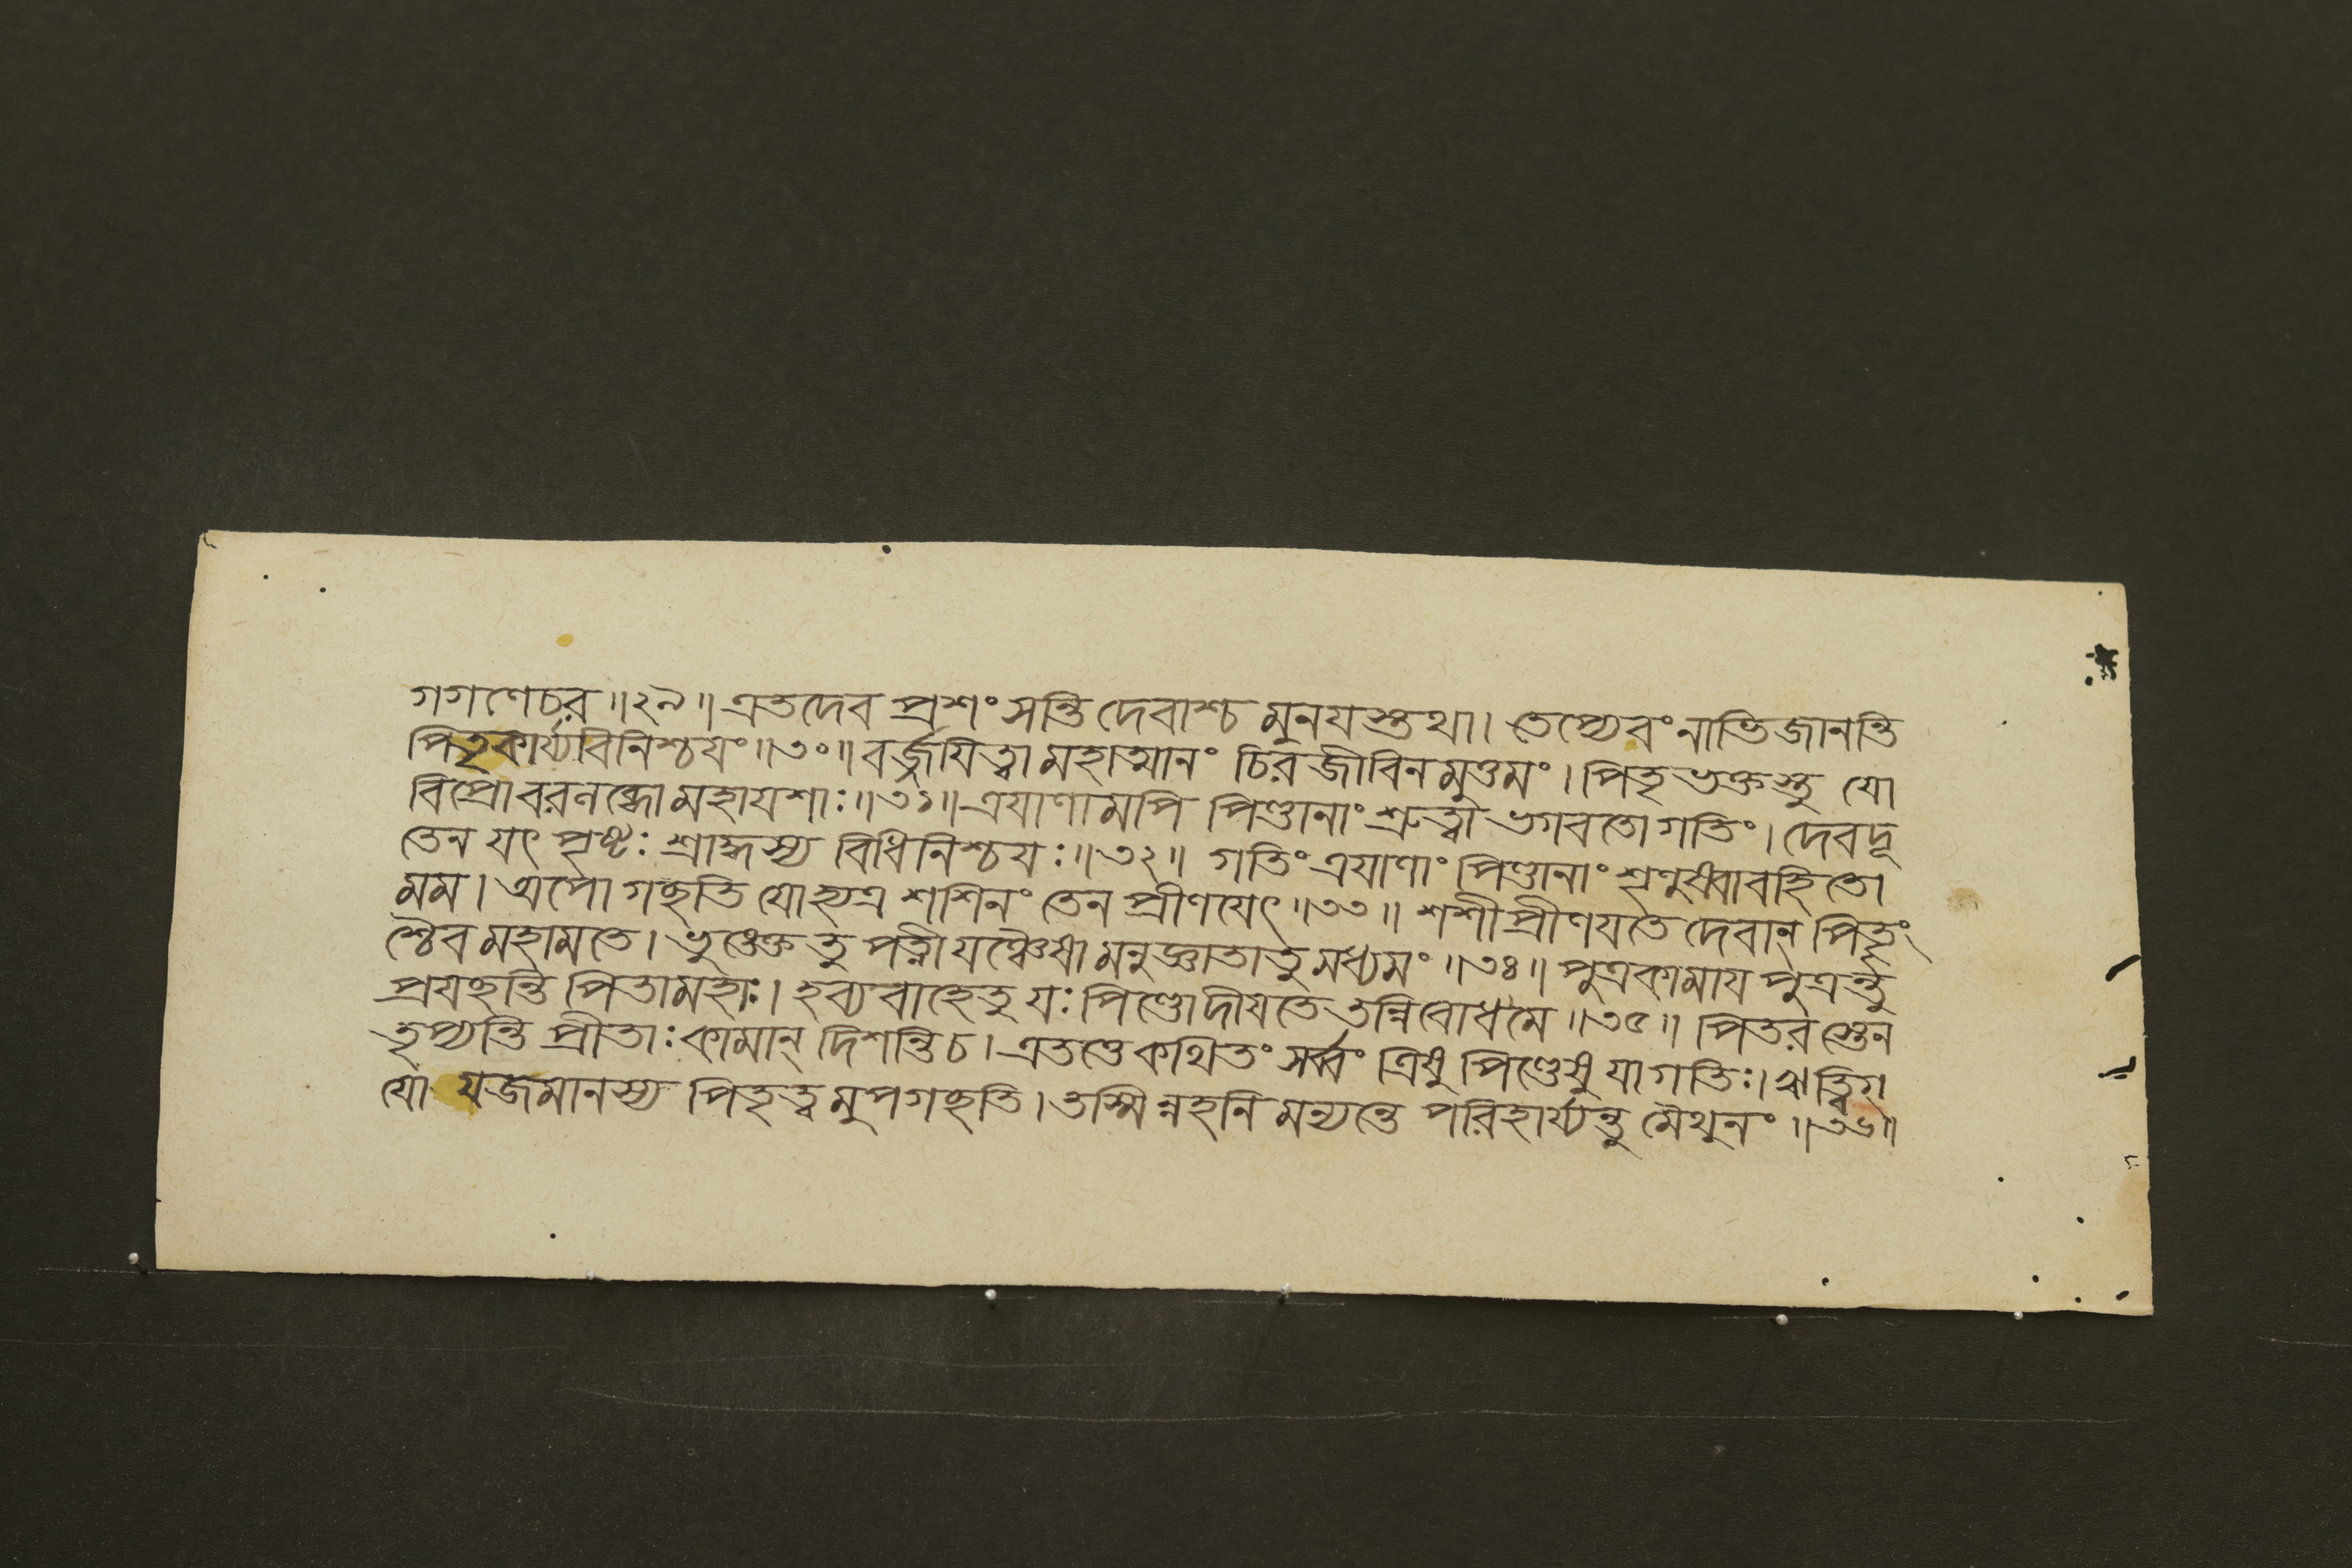 গগণেচর॥২৯॥এতদেব প্রশংসন্তি দেবাশ্চ মুনযস্তথা। তেপ্যেবং নাভিজানন্তি
পিতৃকার্য্যবিনিশ্চযং॥৩০॥বর্জ্জযিত্বা মহাত্মানং চিরজীবিনমুত্তমং। পিতৃভক্তস্তু যো
বিপ্রোবরলব্ধো মহাযশাঃ॥৩১॥ত্রযাণামপি পিণ্ডানাং শ্রুত্বা ভগবতো গতিং। দেবদূ
তেন যৎ পৃষ্টঃ শ্রাদ্ধস্য বিধিনিশ্চযঃ॥৩২॥ গতিং ত্রযাণাং পিণ্ডানাং শৃণুষ্বাবহিতো
মম। অপো গচ্ছতি যোহ্যত্র শশিনং তেন প্রীণযেৎ॥৩৩॥ শশী প্রীণযতে দেবান্ পিতৄং
শ্চৈব মহামতে। ভুঙ্ক্তে তু পত্নী যঞ্চৈষামনুজ্ঞাতা তু মধ্যমং॥৩৪॥ পুত্রকামায পুত্রন্তু
প্রযচ্ছন্তি পিতামহাঃ। হব্যবাহে তু যঃ পিণ্ডো দীযতে তন্নিবোধ মে॥৩৫॥ পিতরস্তেন
তৃপ্যন্তি প্রীতাঃ কামান্ দিশন্তি চ। এতত্তে কথিতং সর্ব্বং ত্রিষু পিণ্ডেষু যা গতিঃ। ঋত্বিগ্
যো যজমানস্য পিতৃত্বমুপগচ্ছতি। তস্মিন্নহনি মন্যন্তে পরিহার্য্যন্তু মৈথুনং॥৩৬॥